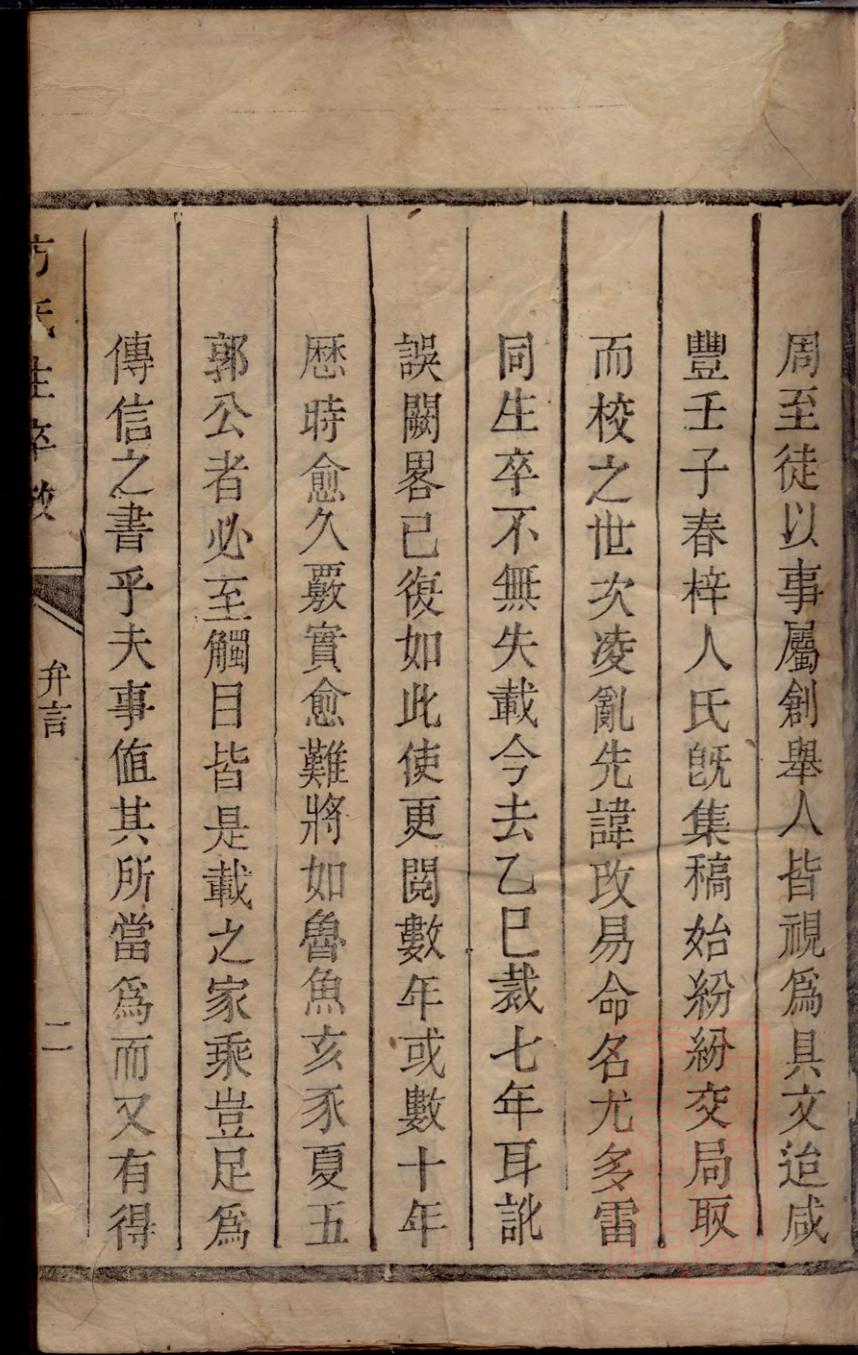 周至徒以事屬創舉人皆視爲具文迨咸
豐壬子春梓人氏旣集稿始紛紛交局取
而校之世次凌亂先諱攺易命名尤多雷
同生卒不無失載今去乙巳裁七年耳訛
誤闕畧已復如此使更閱數年或數十年
歴時愈久覈實愈難將如魯魚亥豕夏五
郭公者必至觸目皆是載之家乘豈足爲
傳信之書乎夫事值其所當爲而又有得
方氏生卒
弁言
二